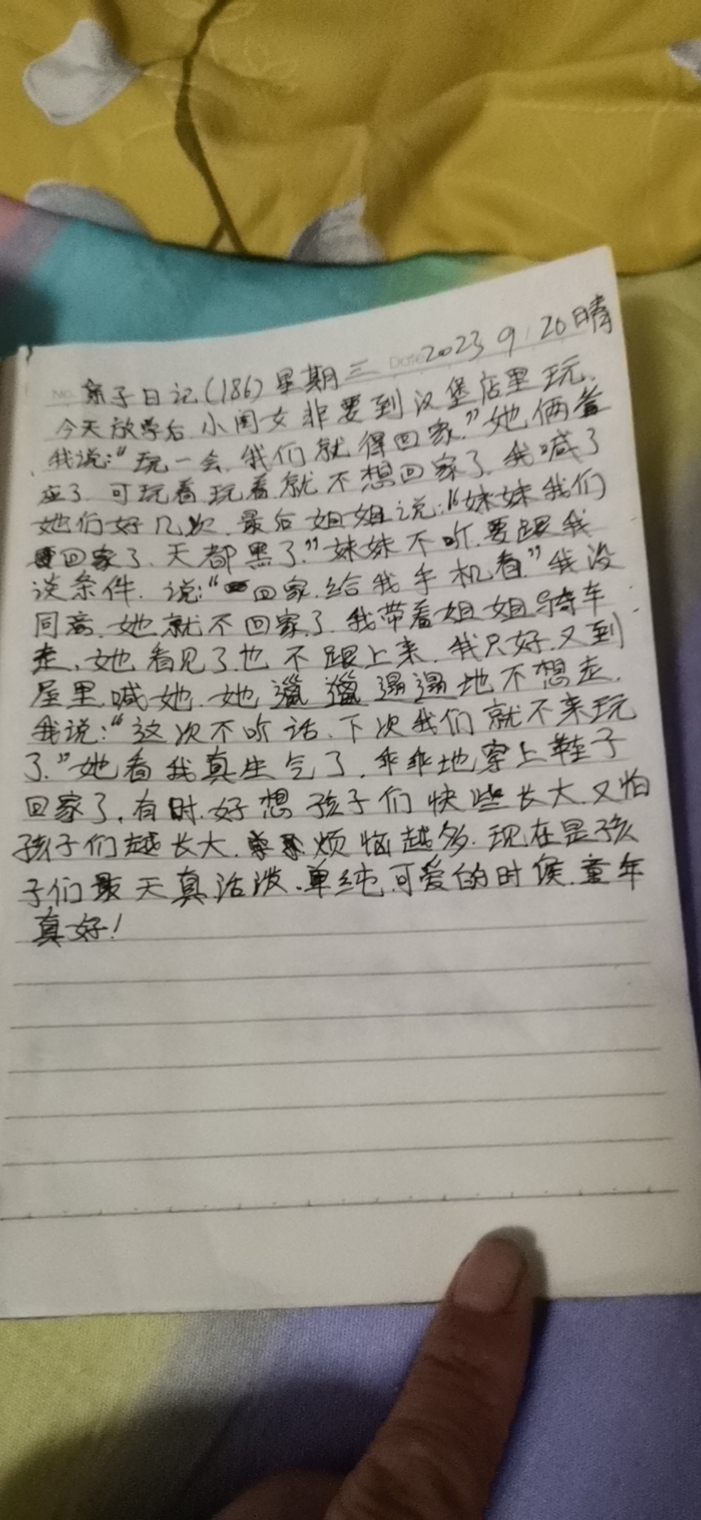 亲子日记(186)星期三 Date 2023 9 20 晴
今天放学后.小闺女非要到汉堡店里玩.
我说:"玩一会.我们就得回家."她俩答
应了.可玩着玩着就不想回家了.我喊了
她们好几次.最后姐姐说:"妹妹我们
回家了.天都黑了."妹妹不听.要跟我
谈条件.说:"回家.给我手机看."我没
同意.她就不回家了.我带着姐姐骑车
走.她看见了也不跟上来.我只好又到
屋里喊她.她邋邋遢遢地不想走.
我说:"这次不听话.下次我们就不来玩
了."她看我真生气了.乖乖地穿上鞋子
回家了.有时.好想孩子们快些长大.又怕
孩子们越长大.烦恼越多.现在是孩
子们最天真活泼.单纯.可爱的时候.童年
真好!